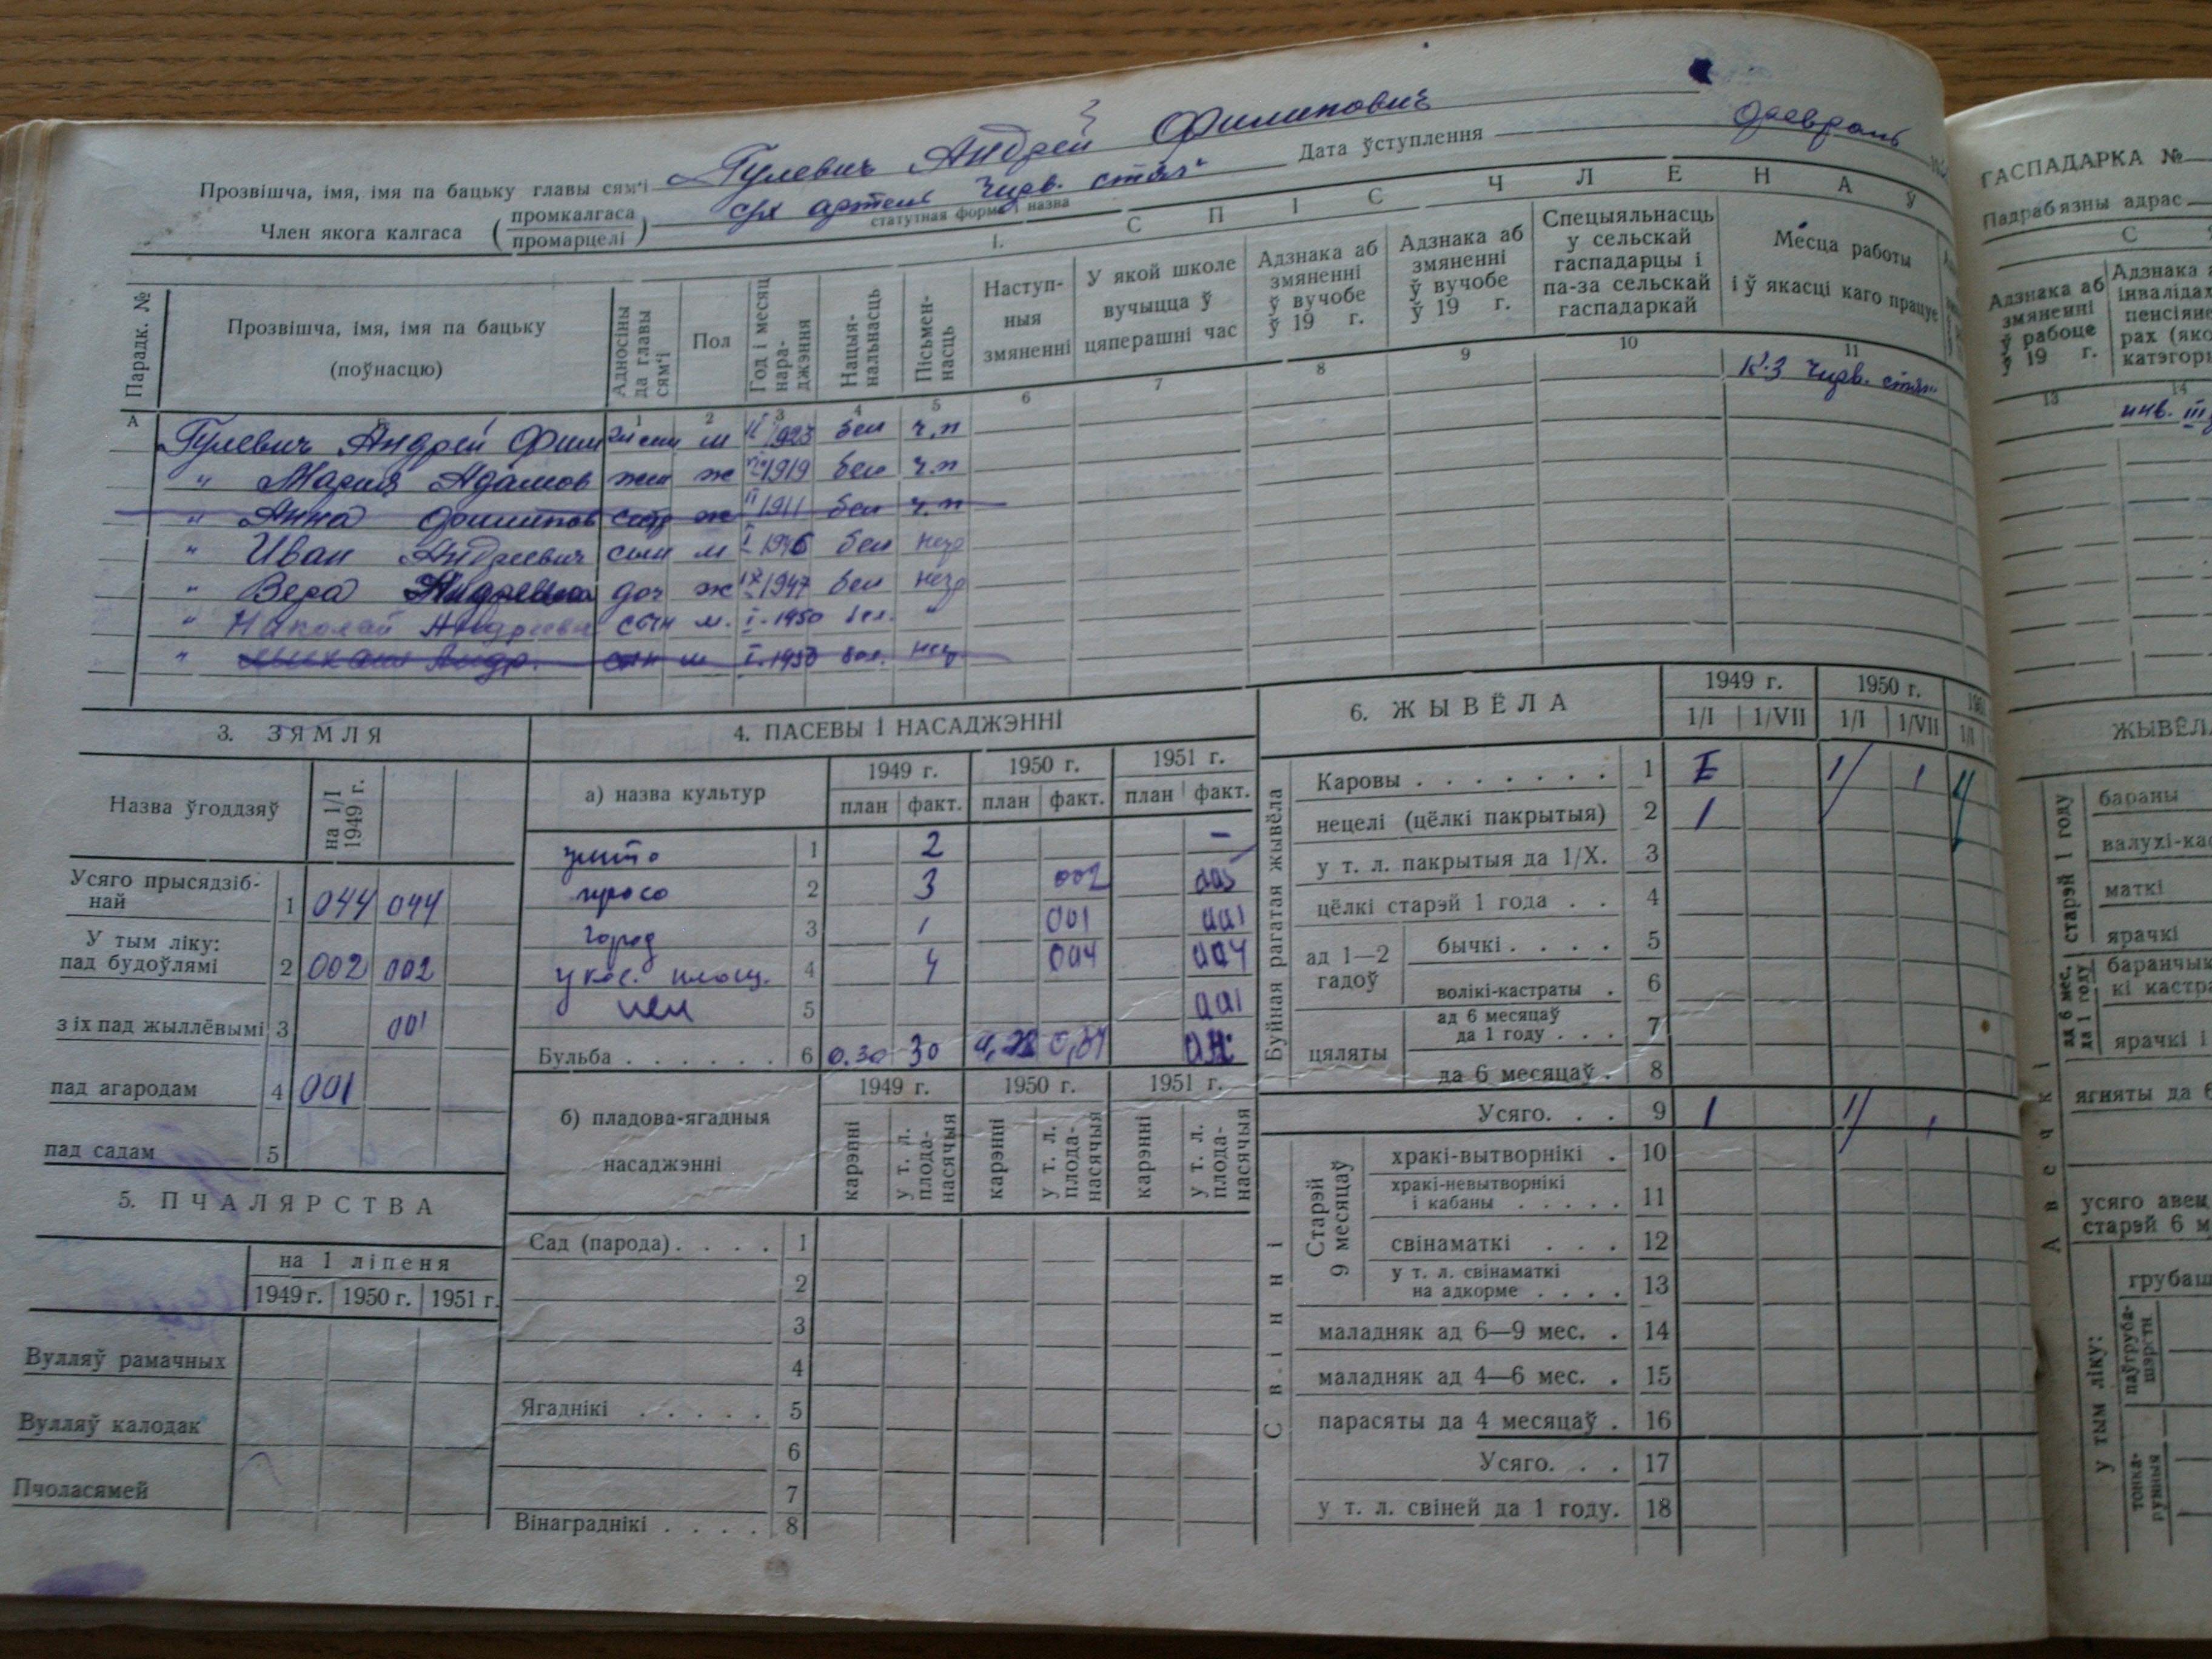 Прозвішча, імя, імя па бацьку главы сям'і Гулевич Андрей Филипович
Член якога калгаса (промкалгаса / промарцелі) с/х артель Чырв. стяг
статутная форма і назва
Дата ўступлення февраль
1. С П І С Ч Л Е Н А Ў
Парадк. №
Прозвішча, імя, імя па бацьку (поўнасцю)
Адносіны да главы сям'і
Пол
Год і месяц нараджэння
Нацыянальнасць
Пісьменнасць
Наступныя змяненні
У якой школе вучыцца ў цяперашні час
Адзнака аб змяненні ў вучобе ў 19 г.
Адзнака аб змяненні ў вучобе ў 19 г.
Спецыяльнасць у сельскай гаспадарцы і па-за сельскай гаспадаркай
Месца работы і ў якасці каго працуе
А 1 2 3 4 5 6 7 8 9 10 11
Гулевич Андрей Фил м 1923 бел ч.п К-з Чырв. стяг
" Мария Адамов жен ж 1919 бел ч.п
" Анна Филипов сестр ж 1911 бел ч.п
" Иван Андреевич сын м 1946 бел негр
" Вера Андреевна доч ж IX 1947 бел негр
" Николай Андрееви сын м. I-1950 бел. "
" Андр. сын м I-1950 бел. нег
3. ЗЯМЛЯ
Назва ўгоддзяў
на 1/I 1949 г.
Усяго прысядзібнай 1 044 044
У тым ліку: пад будоўлямі 2 002 002
з іх пад жыллёвымі 3 001
пад агародам 4 001
пад садам 5
5. ПЧАЛЯРСТВА
на 1 ліпеня
1949 г. 1950 г. 1951 г.
Вулляў рамачных
Вулляў калодак
Пчоласямей
4. ПАСЕВЫ І НАСАДЖЭННІ
а) назва культур
1949 г. 1950 г. 1951 г.
план факт. план факт. план факт.
жито 1 2 –
просо 2 3 002 005
город 3 1 001 001
укос. площ. 4 4 004 004
лен 5 001
Бульба 6 0.30 30
б) пладова-ягадныя насаджэнні
1949 г. 1950 г. 1951 г.
карэнні
у т. л. плоданасячыя
карэнні
у т. л. плоданасячыя
карэнні
у т. л. плоданасячыя
Сад (парода) 1
2
3
4
Ягаднікі 5
6
7
Вінаграднікі 8
6. ЖЫВЁЛА
1949 г. 1950 г.
1/I 1/VII 1/I 1/VII 1/I
Буйная рагатая жывёла
Каровы 1 1 1
нецелі (цёлкі пакрытыя) 2 1
у т. л. пакрытыя да 1/X. 3
цёлкі старэй 1 года 4
ад 1—2 гадоў
бычкі 5
волікі-кастраты 6
цяляты
ад 6 месяцаў да 1 году 7
да 6 месяцаў 8
Усяго 9 1 1 1
Свінні
Старэй 9 месяцаў
хракі-вытворнікі 10
хракі-невытворнікі і кабаны 11
свінаматкі 12
у т. л. свінаматкі на адкорме 13
маладняк ад 6—9 мес. 14
маладняк ад 4—6 мес. 15
парасяты да 4 месяцаў 16
Усяго 17
у т. л. свіней да 1 году. 18
ГАСПАДАРКА №
Падрабязны адрас
С
Адзнака аб змяненні ў рабоце ў 19 г.
13 14
инв. III
бараны
маткі
ярачкі
старэй 1 году
ад 6 мес. да 1 году
Авечкі
ягняты да 6
старэй 6 м
у тым ліку: